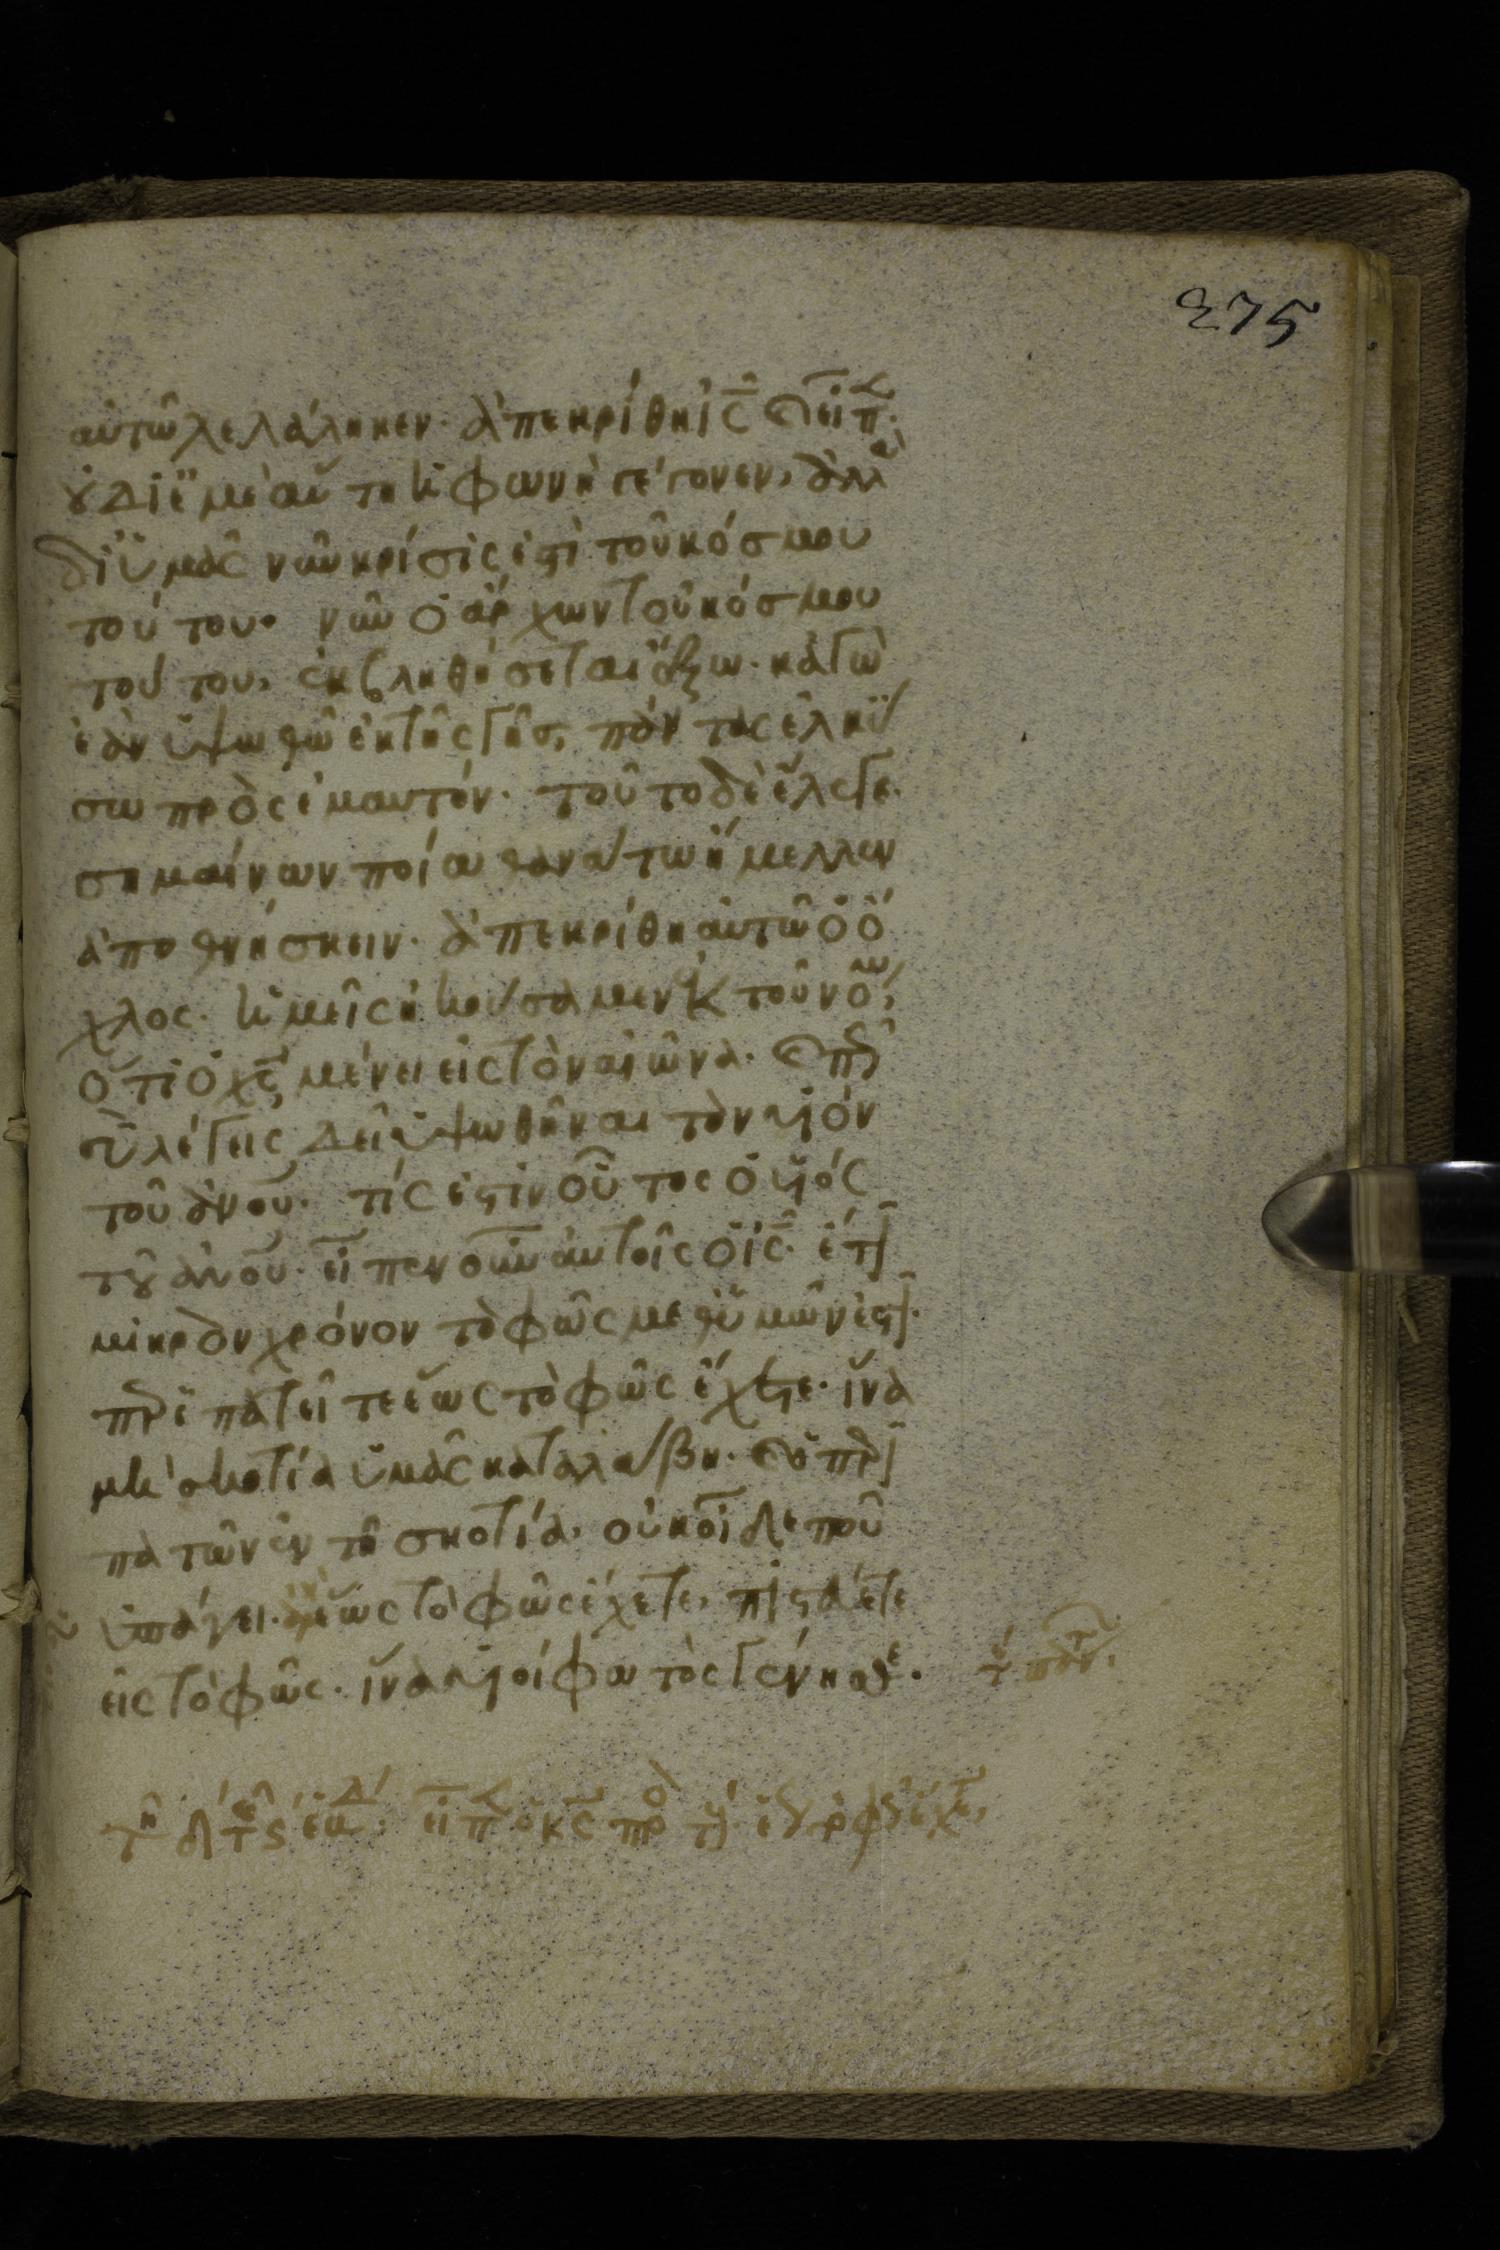 275
αὐτῶ λελάληκεν· ἀπεκρίθη ἰς̅ καὶ εἶπ·
οὐ δι' ἐμὲ αὕτη ἡ φωνὴ γέγονεν, ἀλλὰ
δι' ὑμᾶς νῦν κρίσις ἐστὶ τοῦ κόσμου
τούτου· νῦν ὁ ἄρχων τοῦ κόσμου
τούτου, ἐκβληθήσεται ἔξω· κἀγὼ
ἐὰν ὑψωθῶ ἐκ τῆς γῆς, πάντας ἑλκύ
σω πρὸς ἐμαυτόν· τοῦτο δὲ ἔλεγε
σημαίνων ποίω θανάτω ἤμελλεν
ἀποθνήσκειν· ἀπεκρίθη αὐτῶ ὁ ὄ
χλος· ἡμεῖς ἠκούσαμεν ἐκ τοῦ νό,
ὅτι ὁ χς̅ μένει εἰς τὸν αἰῶνα· καὶ πῶς
σὺ λέγεις δεῖ ὑψωθῆναι τὸν υἱὸν
τοῦ ἀνου̅· τίς ἐστιν οὗτος ὁ υἱὸς
τοῦ ἀνου̅· εἶπεν οὖν αὐτοῖς ὁ ἰς̅· ἔτι
μικρὸν χρόνον τὸ φῶς μεθ' ὑμῶν ἐστι·
περιπατεῖτε ἕως τὸ φῶς ἔχετε· ἵνα
μὴ σκοτία ὑμᾶς καταλάβη· καὶ ὁ περι
πατῶν ἐν τῆ σκοτία, οὐκ οἶδε ποῦ
ὑπάγει· ἕως τὸ φῶς ἔχετε, πιστεύετε
εἰς τὸ φῶς· ἵνα υἱοὶ φωτὸς γένησθε·